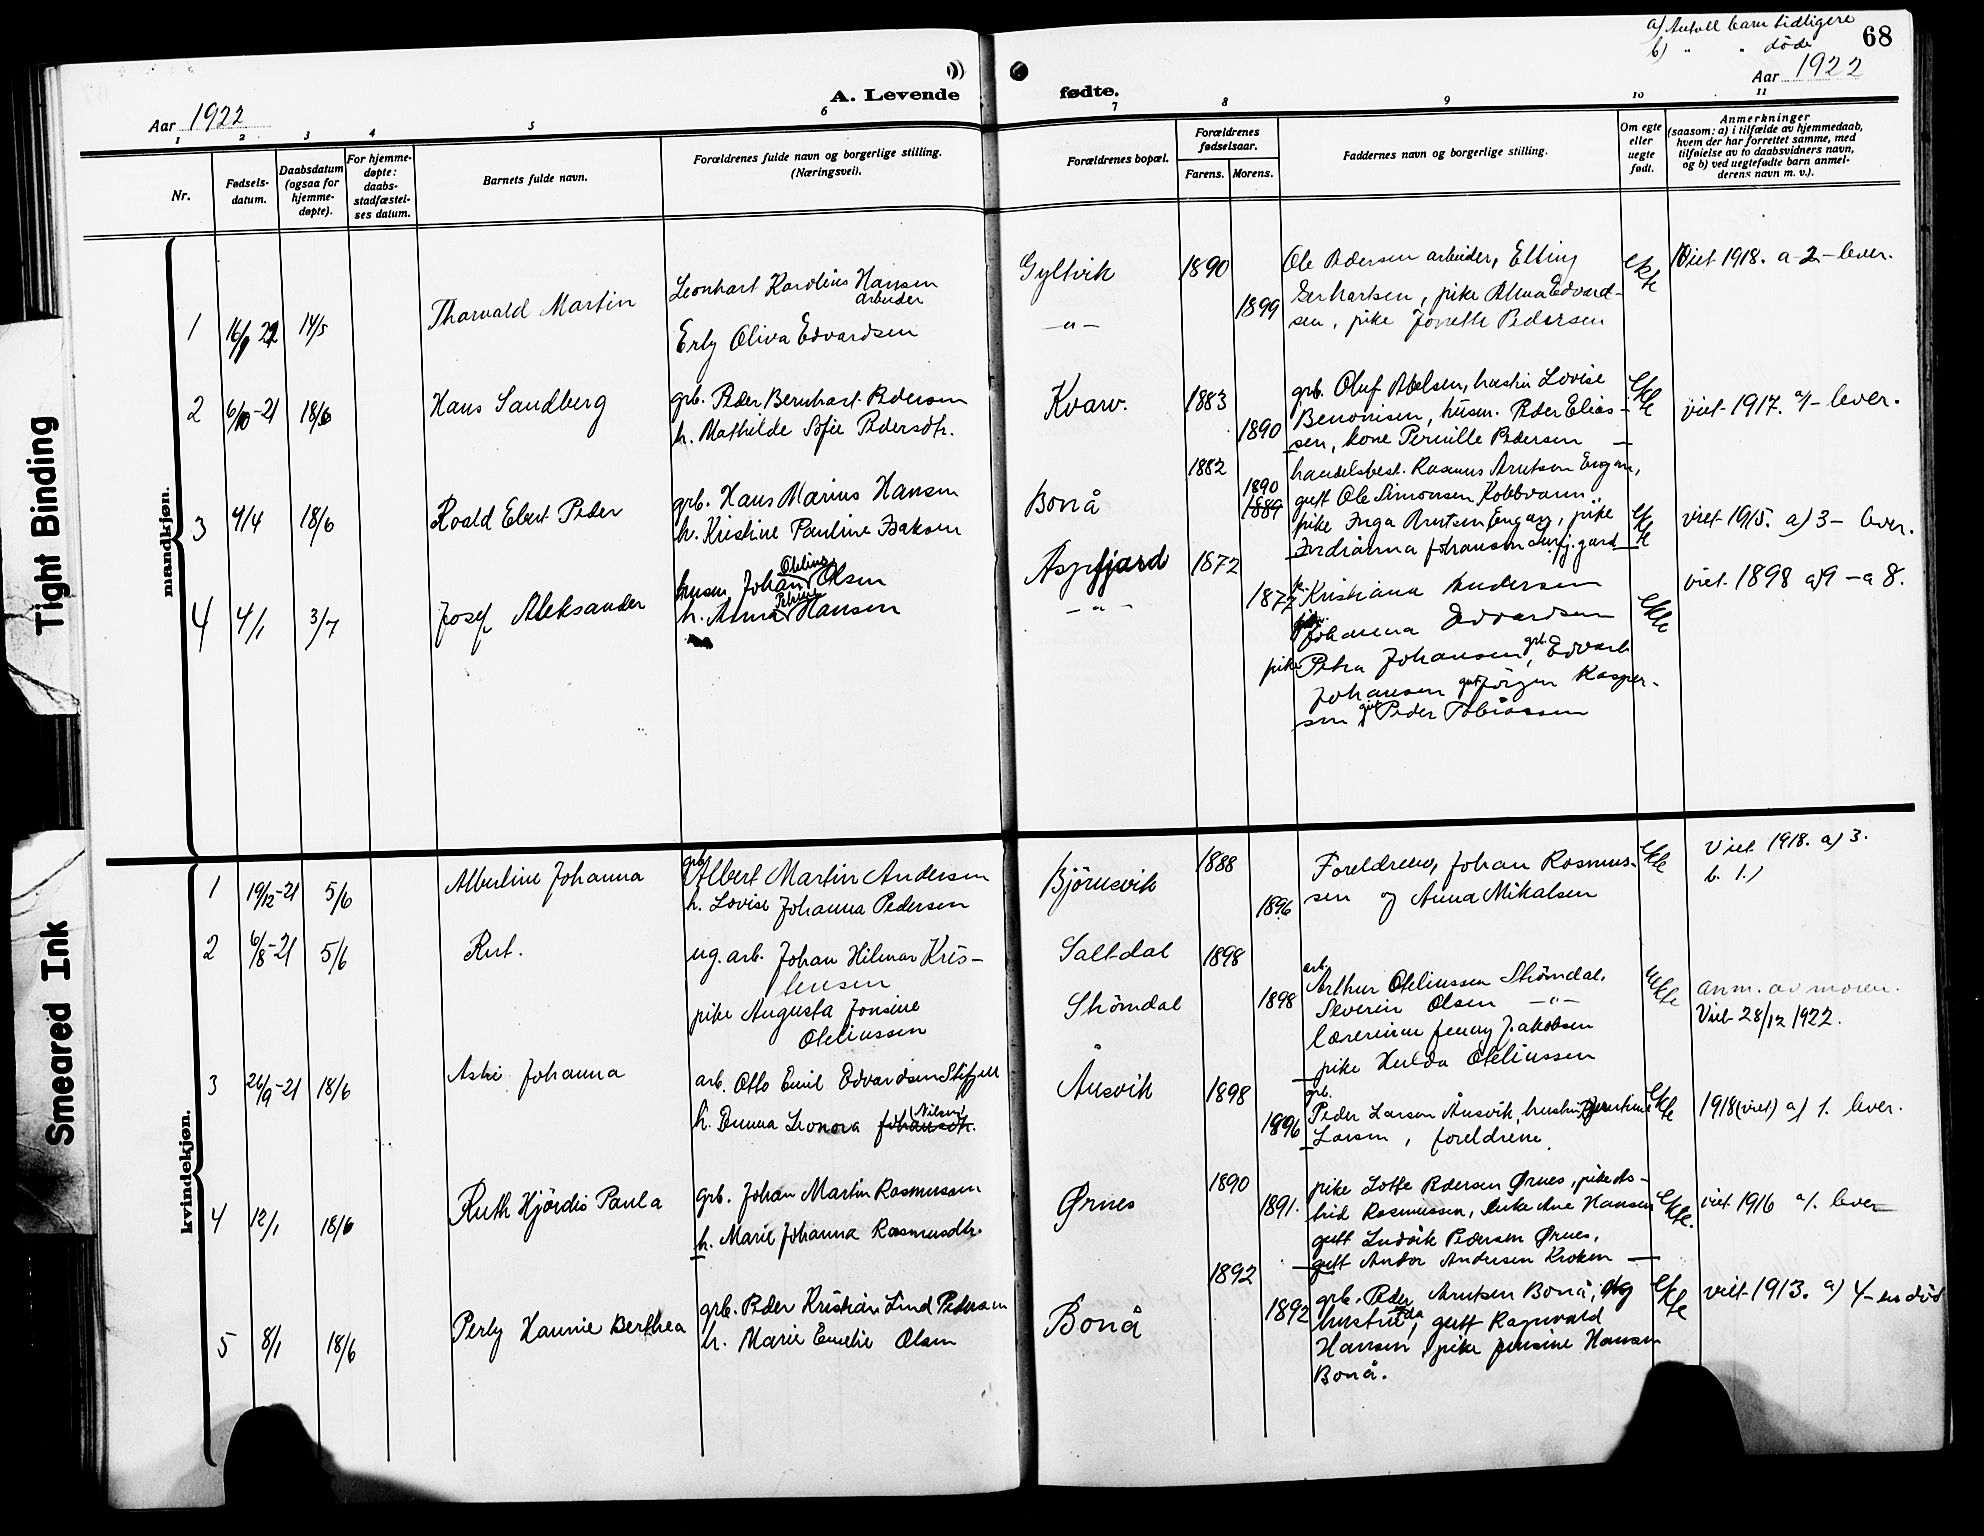 a) Antall barn tidligere
b) " " døde
68
Aar 1922
Aar 1922
A. Levende fødte.
1 2 3 4 5 6 7 8 9 10 11
Nr.
Fødsels-
datum.
Daabsdatum
(ogsaa for
hjemme-
døpte).
For hjemme-
døpte:
daabs-
stadfæstel-
ses datum.
Barnets fulde navn.
Forældrenes fulde navn og borgerlige stilling.
(Næringsvei).
Forældrenes bopæl.
Forældrenes
fødselsaar.
Farens. Morens.
Faddernes navn og borgerlige stilling.
Om egte
eller
uegte
født.
Anmerkninger
(saasom: a) i tilfælde av hjemmedaab,
hvem der har forrettet samme, med
tilføielse av to daabsvidners navn,
og b) ved uegtefødte barn anmel-
derens navn m. v.).
mandkjøn.
1 14/5
Thorvald Martin
Leonhart Karolius Hansen
arbeider
Erly Oliva Edvardsen
Gyltvik
—"—
1890
1899
Ole Pedersen arbeider, Elling
Gerhartsen, pike Alma Edvard-
sen, pike Jonette Pedersen
ekte
Viet 1918. a-2-lever.
2 6/10-21 18/6
Hans Sandberg
grb. Peder Bernhart Pedersen
h. Mathilde Sofie Pedersdtr.
Kvarv.
1883
1890
grb. Oluf Abelsen, hustru Lovise
Benonisen, husm. Peder Elias-
sen, kone Pernille Pedersen —
ekte
viet 1917. a/- lever.
3 9/4 18/6
Roald Ebert Peder
grb. Hans Marius Hansen
h. Kristine Pauline Isaksen
Bonå
1882
1890
1889
handelsbest. Rasmus Arntsen Engan,
gutt Ole Simonsen Kobbvann,
pike Inga Arntsen Engan, pike
Indianna Johansen
ekte
viet 1915. a) 3- lever.
4 4/1 3/7
Josef Aleksander
husm Johan Oteling Olsen
h. Anna Petrine Hansen
Aspfjord
—"—
1872
1877
Kristiana Andersen
Johanna Edvardsen
pike Petra Johansen, grb. Edvart
Johansen gut Jörgen Kasper-
sen gut Peder Tobiassen
ekte
viet 1898 a)9 - a 8.
kvindekjøn.
1 19/12-21 5/6
Albertine Johanna
grb. Albert Martin Andersen
h. Lovise Johanna Pedersen
Björnsvik
1888
1896
Foreldrene, Johan Rasmus-
sen og Anna Mikalsen
ekte
Viet 1918. a) 3.
b. 1.)
2 6/8-21 5/6
Rut.
ug. arb. Johan Hilmar Kris-
tensen
pike Augusta Jonsine
Oteliussen
Saltdal
Strömdal
1898
1898
arb. Arthur Oteliussen Strömdal.
Severin Olsen —"—
lærerinne Jenny Jakobsen
pike Hulda Oteliussen
uekte
anm. av moren.
Viet 28/12 1922.
3 26/9-21 18/6
Astri Johanna
arb. Otto Emil Edvardsen Stifjell
h. Emma Leonora Johansdtr. (Nilsen)
Ånsvik
1898
1896
grb. Peder Larsen Ånsvik, hustru
Larsen, foreldrene.
ekte
1918 (viet) a) 1. lever.
4 12/1 18/6
Ruth Hjördis Paula
grb. Johan Martin Rasmussen
h. Marie Johanna Rasmusdtr.
Ørnes
1890
1891.
pike Lotte Pedersen Ørnes, pike As-
trid Rasmussen, enke Ane Hansen
gutt Ludvik Pedersen Ørnes,
gutt Andor Andersen Kroken —
ekte.
viet 1916 a/. lever
5 8/1 18/6
Perly Hannie Berthea
grb. Peder Kristian Lind Pedersen
h. Marie Emelie Olsen
Bonå
1892
1892
grb. Peder Arntsen Bonå, og
hustru Ida, gutt Ragnvald
Hansen, pike Jensine Hansen
Bonå.
ekte
viet 1913. a) 4- en död
Tight Binding
Smeared Ink